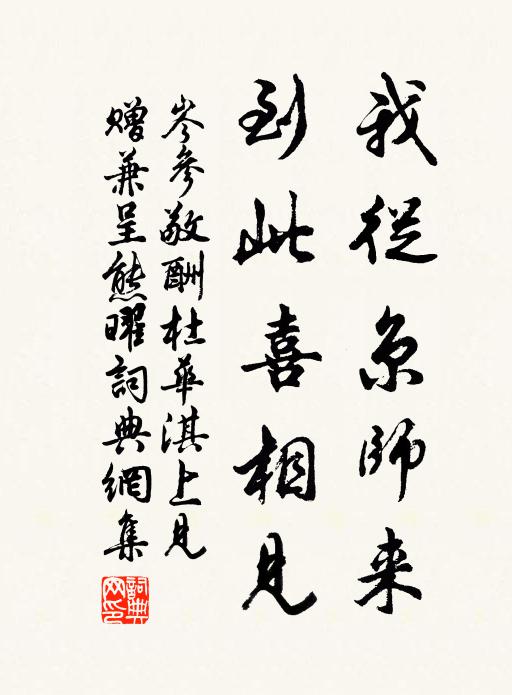 我從京師来
到此喜相見
岑參敬酬杜華淇上見
贈兼呈熊曜詞典網集
詞典网印